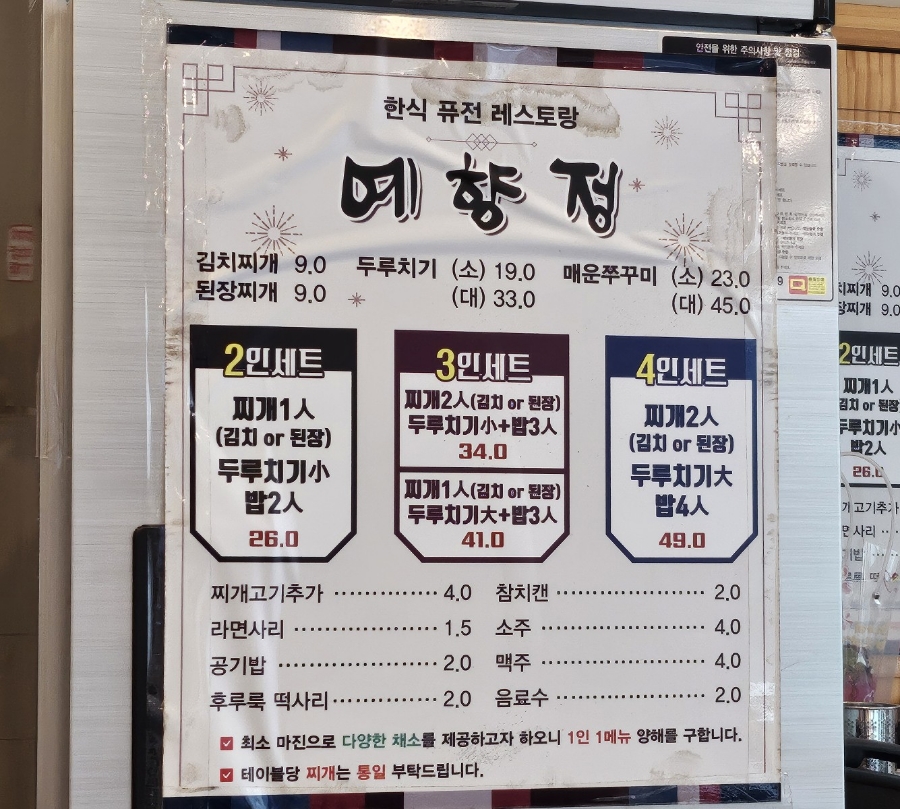 안전을 위한 주의사항 및 점검
한식 퓨전 레스토랑
예향정
김치찌개 9.0
된장찌개 9.0
두루치기 (소) 19.0
(대) 33.0
매운쭈꾸미 (소) 23.0
(대) 45.0
2인세트
찌개1人
(김치 or 된장)
두루치기小
밥2人
26.0
3인세트
찌개2人(김치 or 된장)
두루치기小+밥3人
34.0
찌개1人(김치 or 된장)
두루치기大+밥3人
41.0
4인세트
찌개2人
(김치 or 된장)
두루치기大
밥4人
49.0
찌개고기추가 4.0
라면사리 1.5
공기밥 2.0
후루룩 떡사리 2.0
참치캔 2.0
소주 4.0
맥주 4.0
음료수 2.0
최소 마진으로 다양한 채소를 제공하고자 하오니 1인 1메뉴 양해를 구합니다.
테이블당 찌개는 통일 부탁드립니다.
찌개 9.0
찌개 9.0
2인세트
찌개1人
김치 or 된장
두루치기小
밥2人
26.0
고기추가
사리